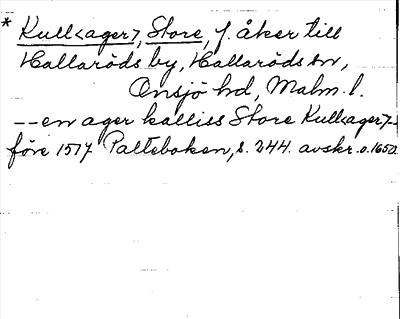 * Kull<ager>, Store, f. åker till
Hallaröds by, Hallaröds sn,
Onsjö hd, Malm. l.
-- en ager kalliss Store Kull<ager>--
före 1517 Palteboken, s. 244. avskr. o. 1650